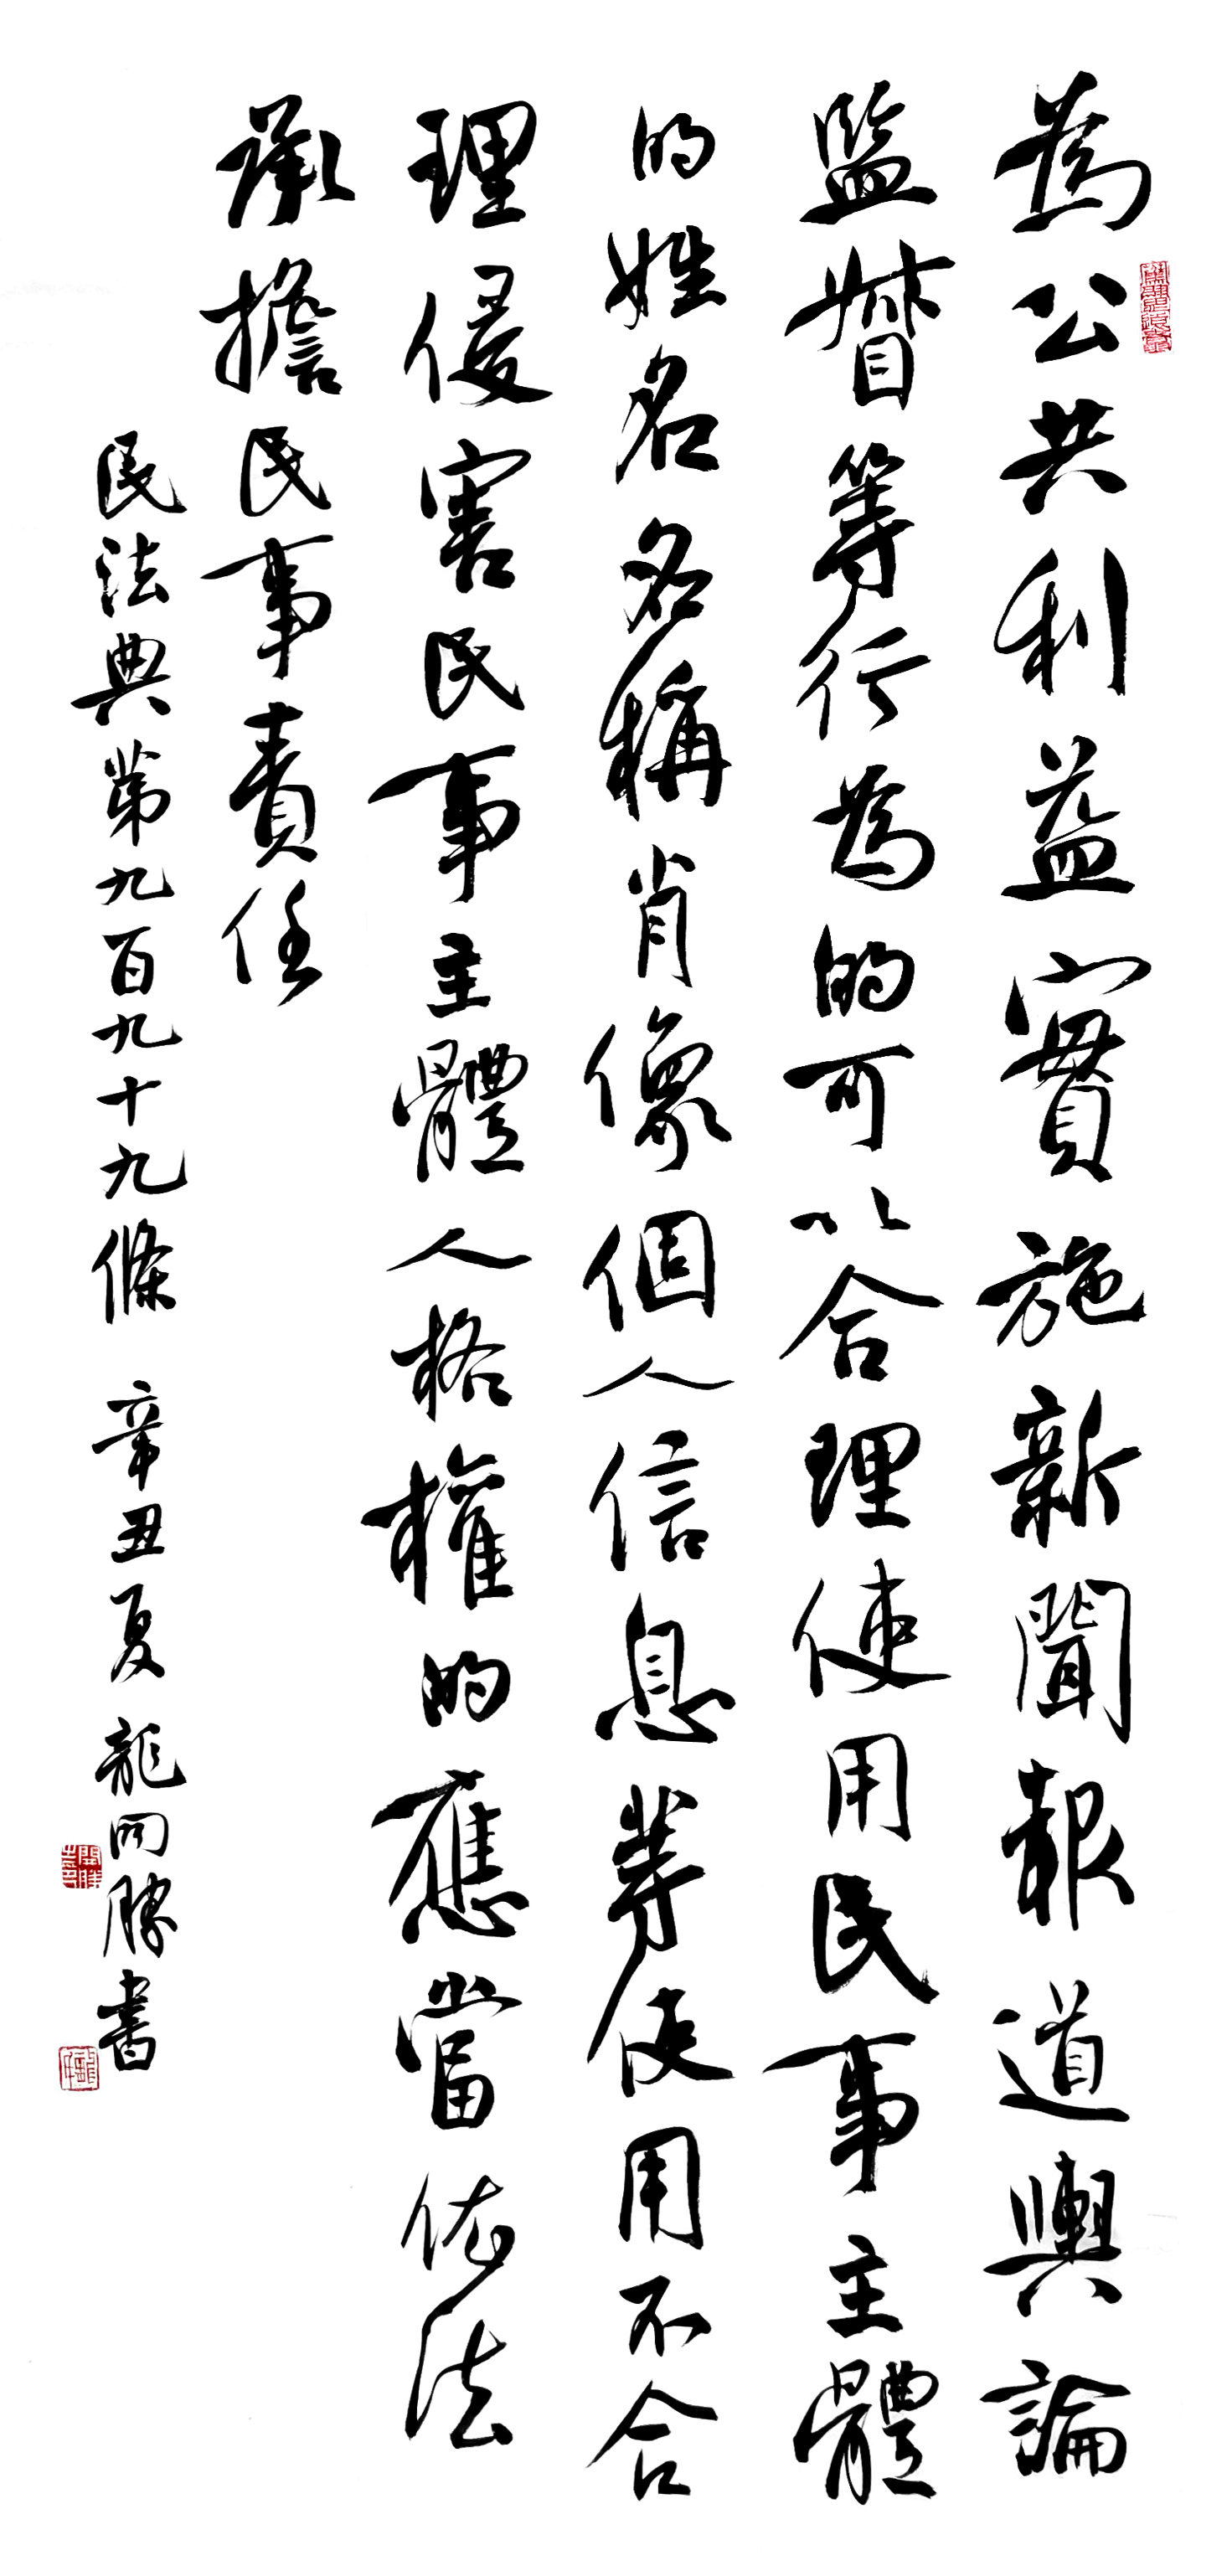 為公共利益實施新聞報道輿論
監督等行為的可以合理使用民事主體
的姓名名稱肖像個人信息等使用不合
理侵害民事主體人格權的應當依法
承擔民事責任
民法典第九百九十九條 辛丑夏 龍開勝書